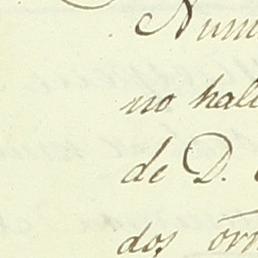 Num
no hall
de D.
dos orn